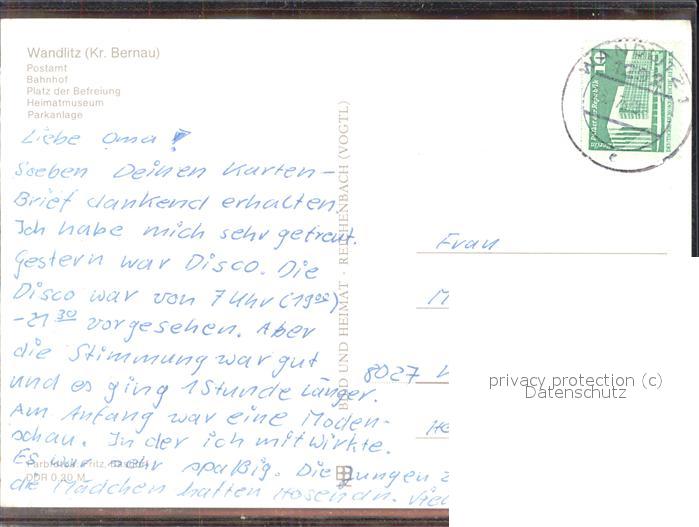 Wandlitz (Kr. Bernau)
Postamt
Bahnhof
Platz der Befreiung
Heimatmuseum
Parkanlage
Liebe Oma!
Soeben Deinen Karten-
Brief dankend erhalten.
Ich habe mich sehr gefreut.
Gestern war Disco. Die
Disco war von 7 Uhr (19⁰⁰)
-21³⁰ vorgesehen. Aber
die Stimmung war gut
und es ging 1 Stunde länger.
Am Anfang war eine Moden-
schau. In der ich mitwirkte.
Es war sehr spaßig. Die Jungen
die Mädchen hatten Hosen an.
DDR 0,20 M
BILD UND HEIMAT · REICHENBACH (VOGTL)
WANDLITZ 1
10
Frau
M
8027
privacy protection (c)
Datenschutz